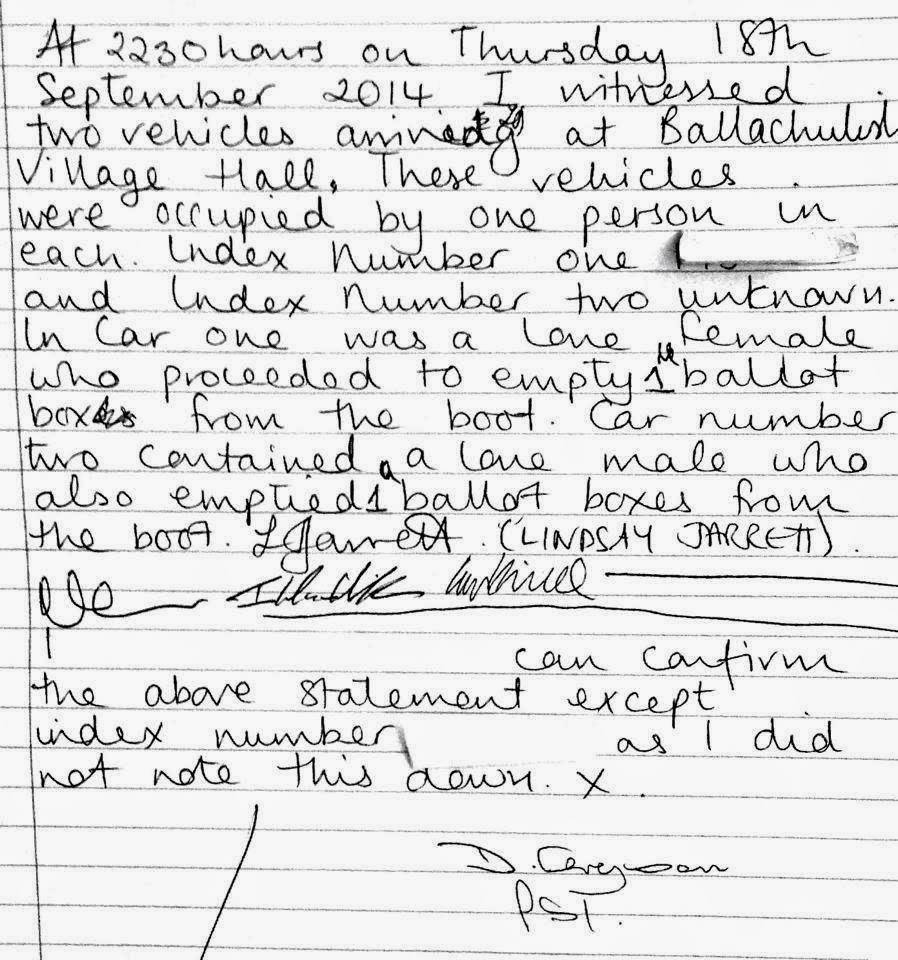 At 2230hours on Thursday 18th
September 2014 I witnessed
two vehicles arriving at Ballachulish
Village Hall. These vehicles
were occupied by one person in
each. Index Number one
and Index Number two unknown.
In Car one was a lone female
who proceeded to empty 1 ballot
box from the boot. Car number
two contained a lone male who
also emptied 1 ballot boxes from
the boot. LJarrett. (LINDSAY JARRETT).
I
can confirm
the above statement except
index number as I did
not note this down. X.
D. Ferguson
PST.